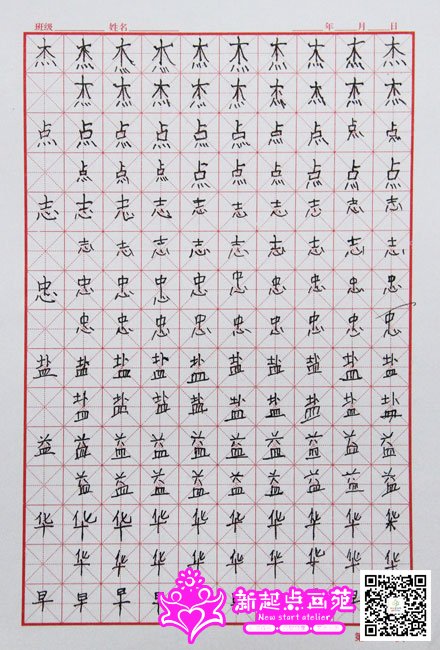 班级 姓名 年 月 日
杰 杰 杰 杰 杰 杰 杰 杰 杰 杰
杰 杰 杰 杰 杰 杰 杰 杰 杰
点 点 点 点 点 点 点 点 点 点
点 点 点 点 点 点 点 点 点
志 志 志 志 志 志 志 志 志 志
志 志 志 志 志 志 志 志 志
忠 忠 忠 忠 忠 忠 忠 忠 忠 忠
忠 忠 忠 忠 忠 忠 忠 忠 忠
盐 盐 盐 盐 盐 盐 盐 盐 盐 盐
盐 盐 盐 盐 盐 盐 盐 盐 盐
益 益 益 益 益 益 益 益 益 益
益 益 益 益 益 益 益 益 益
华 华 华 华 华 华 华 华 华 华
华 华 华 华 华 华 华 华 华
早 早 早
新起点画苑
New start atelier.